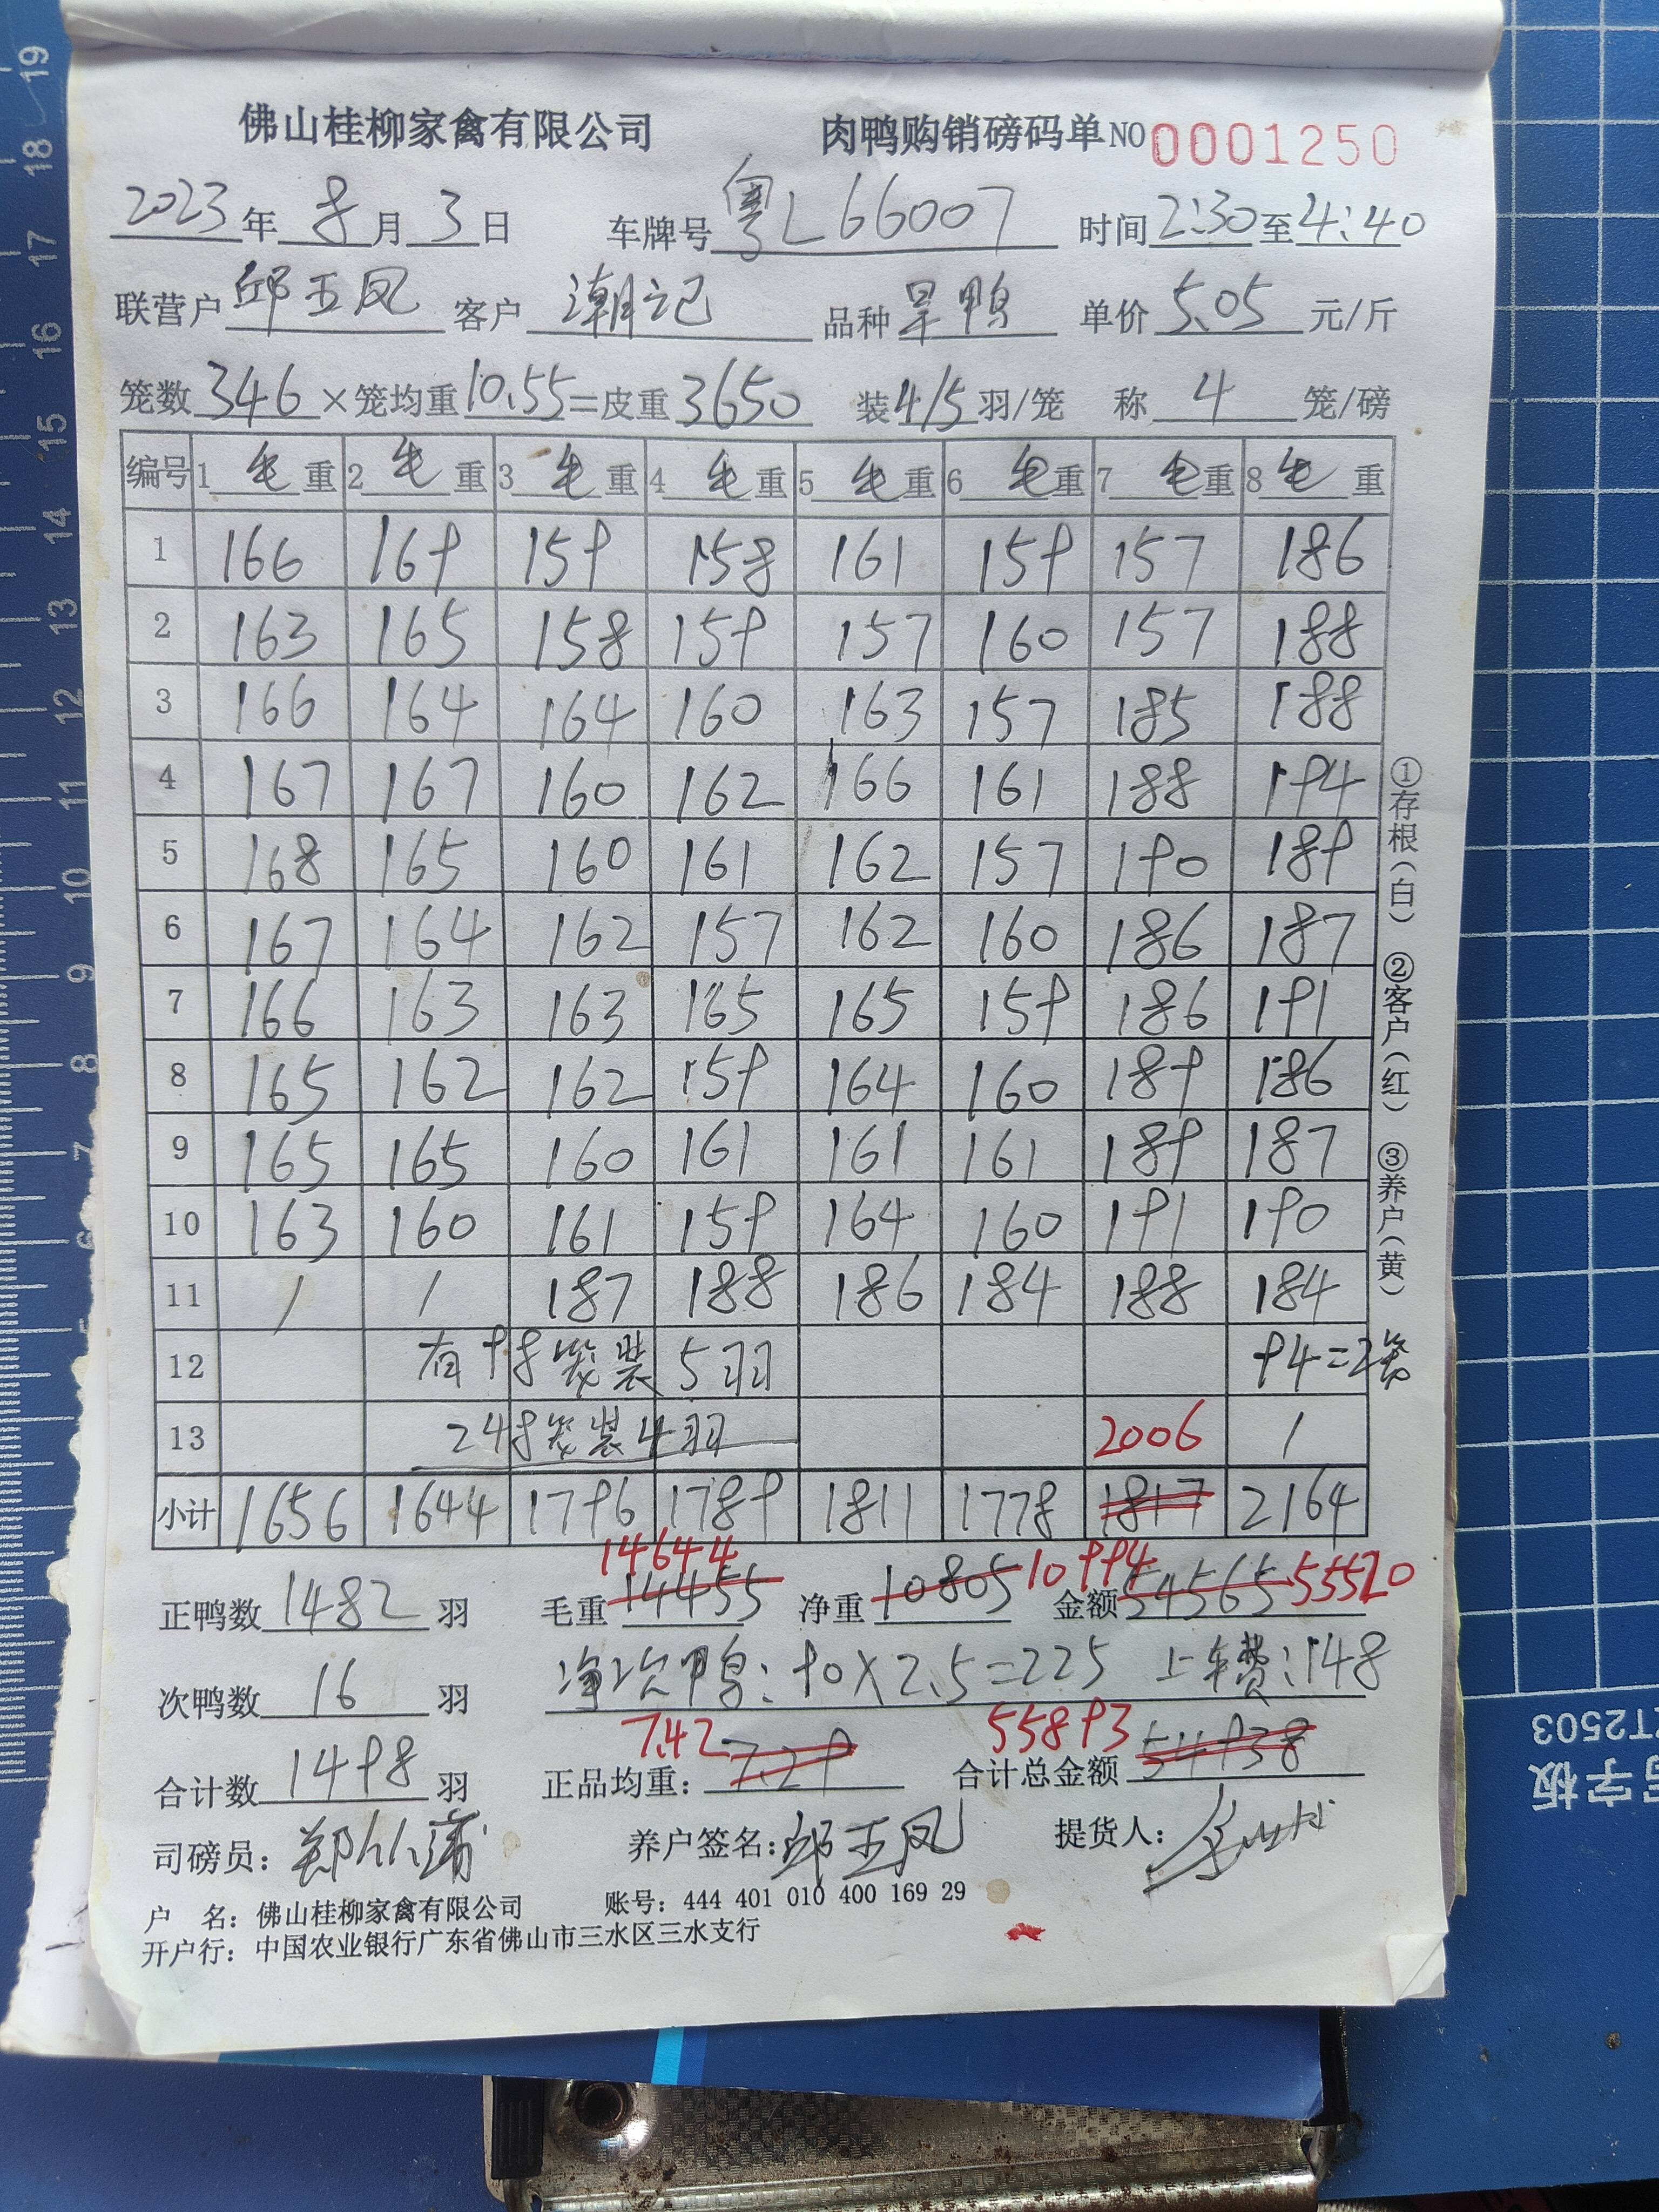 佛山桂柳家禽有限公司 肉鸭购销磅码单 NO 0001250
2023年8月3日 车牌号粤L66007 时间2:30至4:40
联营户邱玉凤 客户潮记 品种旱鸭 单价5.05元/斤
笼数346×笼均重10.55=皮重3650 装4/5羽/笼 称4笼/磅
编号 1毛重 2毛重 3毛重 4毛重 5毛重 6毛重 7毛重 8毛重
1 166 169 159 158 161 159 157 186
2 163 165 158 159 157 160 157 188
3 166 164 164 160 163 157 185 188
4 167 167 160 162 166 161 188 194
5 168 165 160 161 162 157 190 189
6 167 164 162 157 162 160 186 187
7 166 163 163 165 165 159 186 191
8 165 162 162 159 164 160 189 186
9 165 165 160 161 161 161 189 187
10 163 160 161 159 164 160 191 190
11 / / 187 188 186 184 188 184
12 有98笼装5羽 94=2笼
13 248笼装4羽 2006 /
小计 1656 1644 1796 1789 1811 1778 1817 2164
14644 10994 55520
正鸭数1482羽 毛重14455 净重10805 金额54565
次鸭数16羽 净次鸭:90×2.5=225 上车费:148
7.42 55893
合计数1498羽 正品均重:7.29 合计总金额54938
司磅员: 养户签名:邱玉凤 提货人:
户 名:佛山桂柳家禽有限公司 账号:444 401 010 400 169 29
开户行:中国农业银行广东省佛山市三水区三水支行
①存根(白) ②客户(红) ③养户(黄)
19
18
17
16
15
14
13
12
11
10
9
8
7
6
5